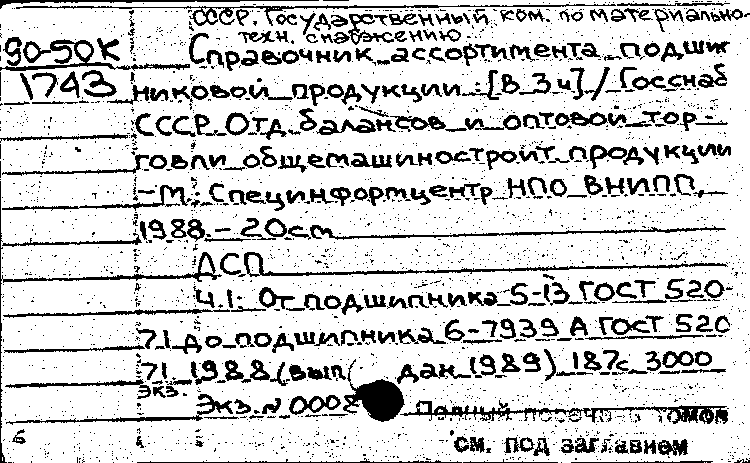 СССР. Государственный ком. по материально-
техн. снабжению.
90-50К
1743
Справочник ассортимента подшип
никовой продукции: [В 3 ч] / Госснаб
СССР. Отд. балансов и оптовой тор-
говли общемашиностроит. продукции
– М.: Специнформцентр НПО ВНИПП,
1988. – 20 см
ДСП
Ч.1: От подшипника 5-13 ГОСТ 520-
71 до подшипника 6-7939 А ГОСТ 520
71 1988 (вып дан 1989) 187с. 3000
экз.
Экз. № 0008
Полный перечень томов
см. под заглавием
6